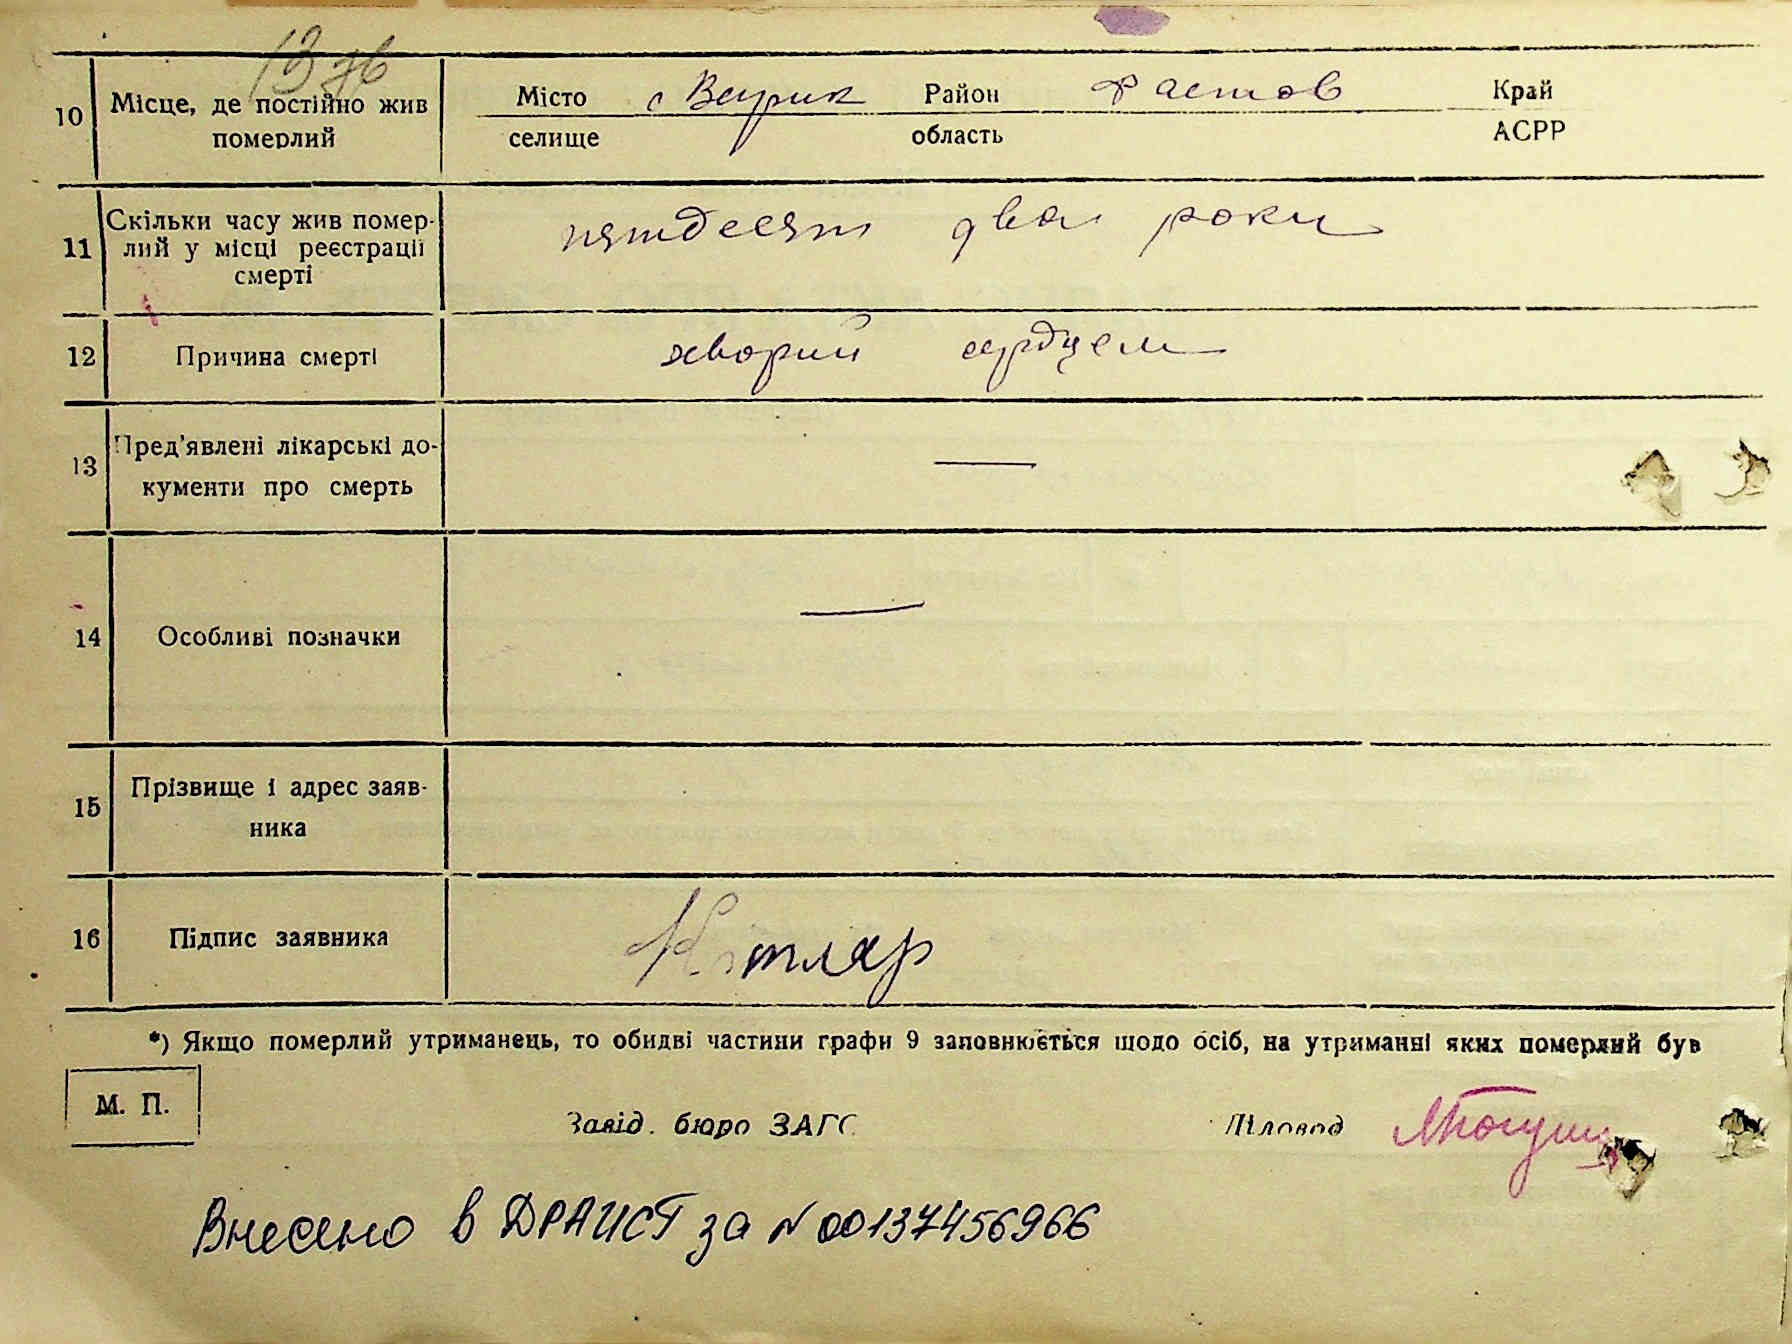 10 Місце, де постійно жив померлий Місто с Веприк Район Фастов Край
селище область АСРР
11 Скільки часу жив помер-
лий у місці реєстрації
смерті пятдесят два роки
12 Причина смерті хворий сердцем
13 Пред'явлені лікарські до-
кументи про смерть —
14 Особливі позначки —
15 Прізвище і адрес заяв-
ника
16 Підпис заявника Котляр
*) Якщо померлий утриманець, то обидві частини графи 9 заповнюється щодо осіб, на утриманні яких померлий був
М. П.
Завід. бюро ЗАГС Діловод
Внесено в ДРАЦСГ за N 00137456966